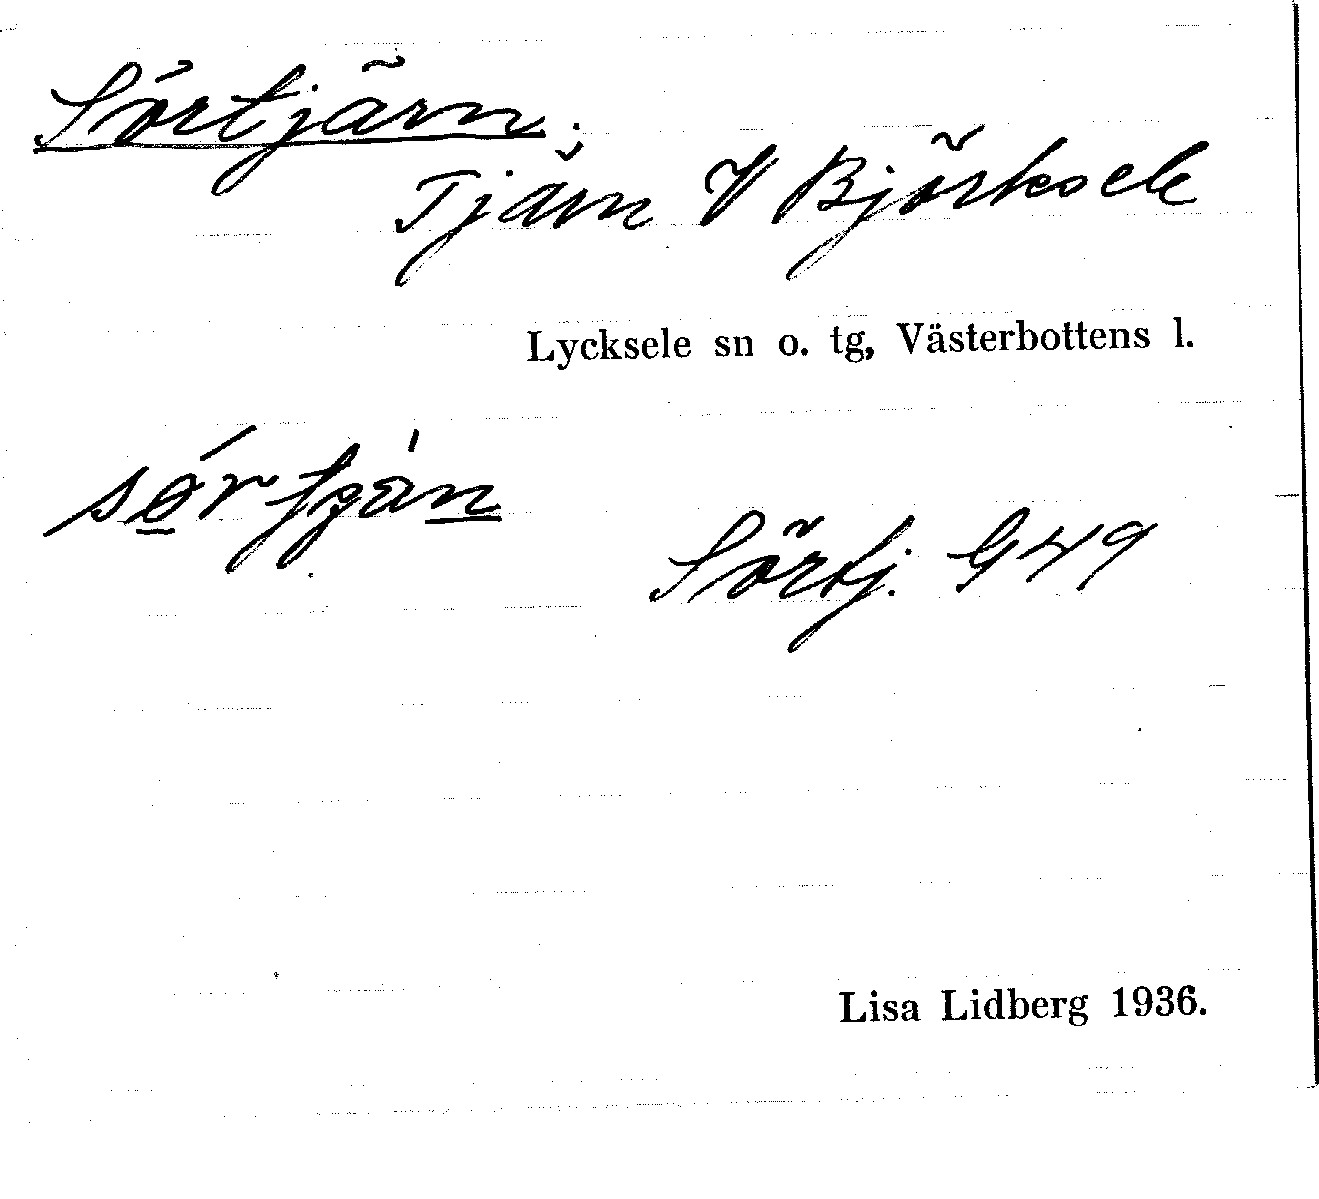 Sörtjärn.
Tjärn V Björksele
Lycksele sn o. tg, Västerbottens l.
Sörtj. G 49
Lisa Lidberg 1936.